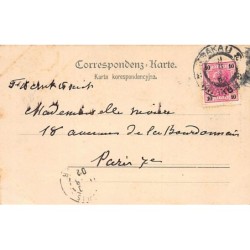 Correspondenz-Karte.
Karta korespondencyjna.
KRAKAU
10 10
10 10
Mademoiselle
18 avenue de la Bourdonnais
Paris 7e